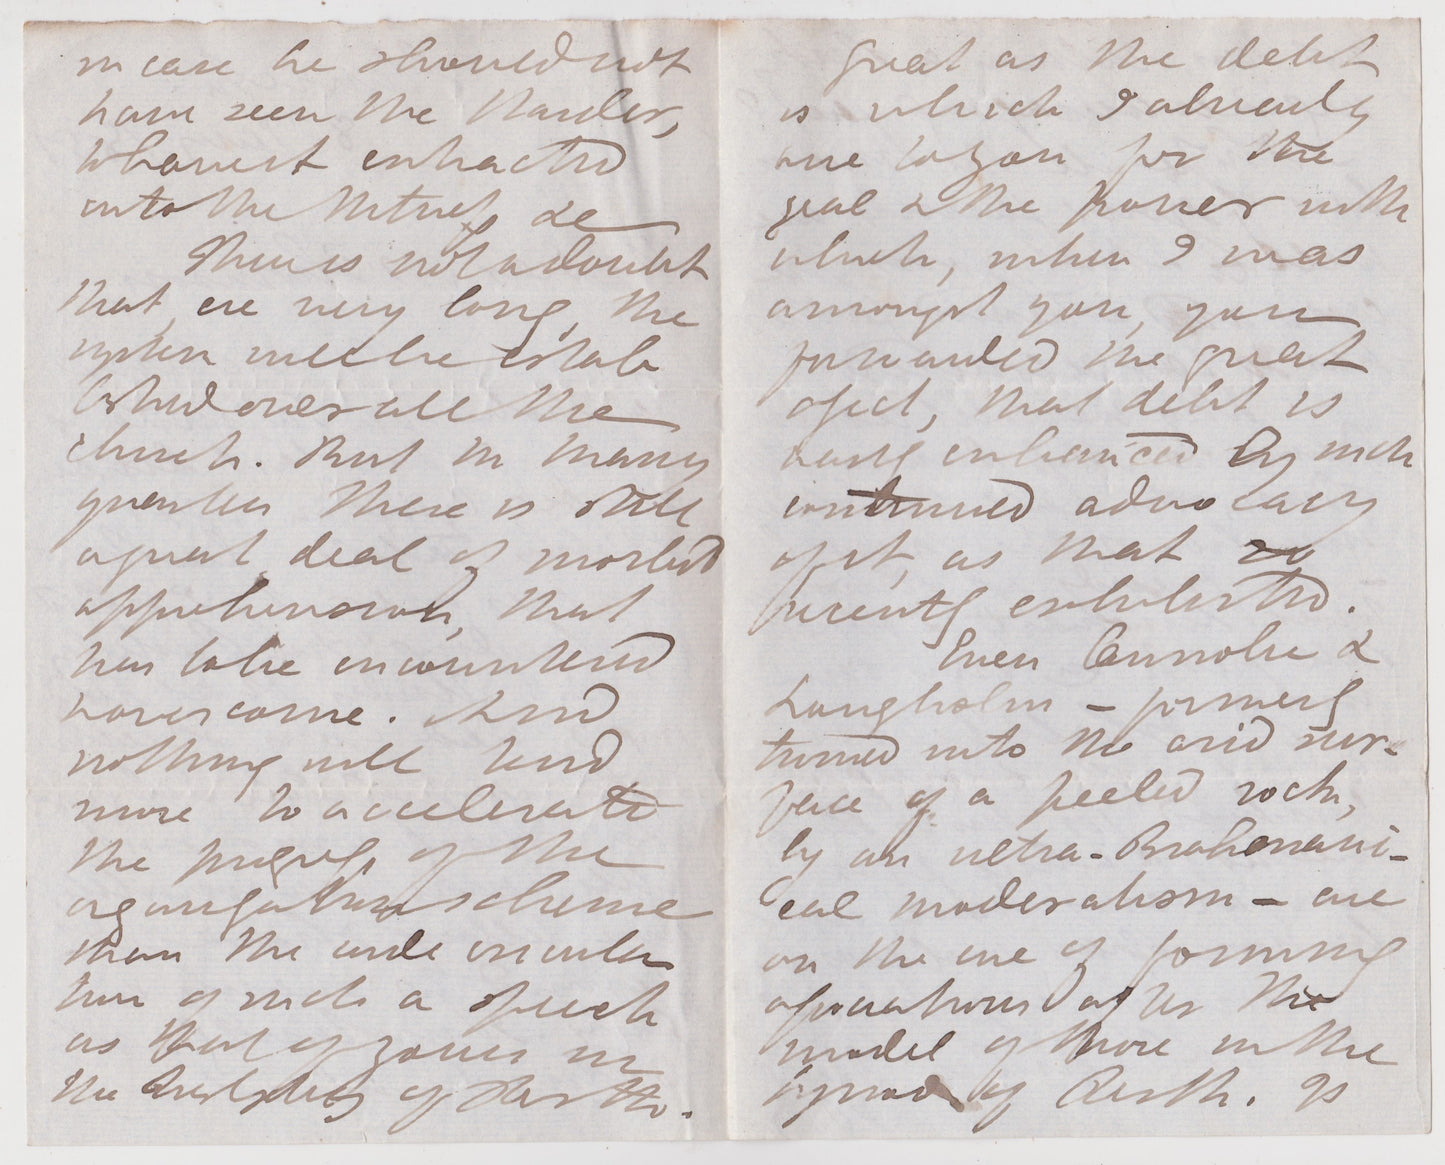 in case he should not
have seen the Warder,
to have it extracted
into the Witness &c
There is not a doubt
that, ere very long, the
system will be estab
lished over all the
church. But in many
quarters there is still
a great deal of morbid
apprehension, that
has to be encountered
& overcome. And
nothing will tend
more to accelerate
the progress of the
organization scheme
than the wide circula
tion of such a speech
as that of yours in
the Presbytery of Perth.
Great as the debt
is which I already
owe to you for the
zeal & the power with
which, when I was
amongst you, you
forwarded the great
object, that debt is
vastly enhanced by such
continued advocacy
of it, as that so
recently exhibited.
Even Canobie &
Langholm – formerly
turned into the arid sur-
face of a peeled rock,
by an ultra-Brahmani-
cal moderatism – are
on the eve of forming
associations after the
model of those in the
Synod of Perth. Is